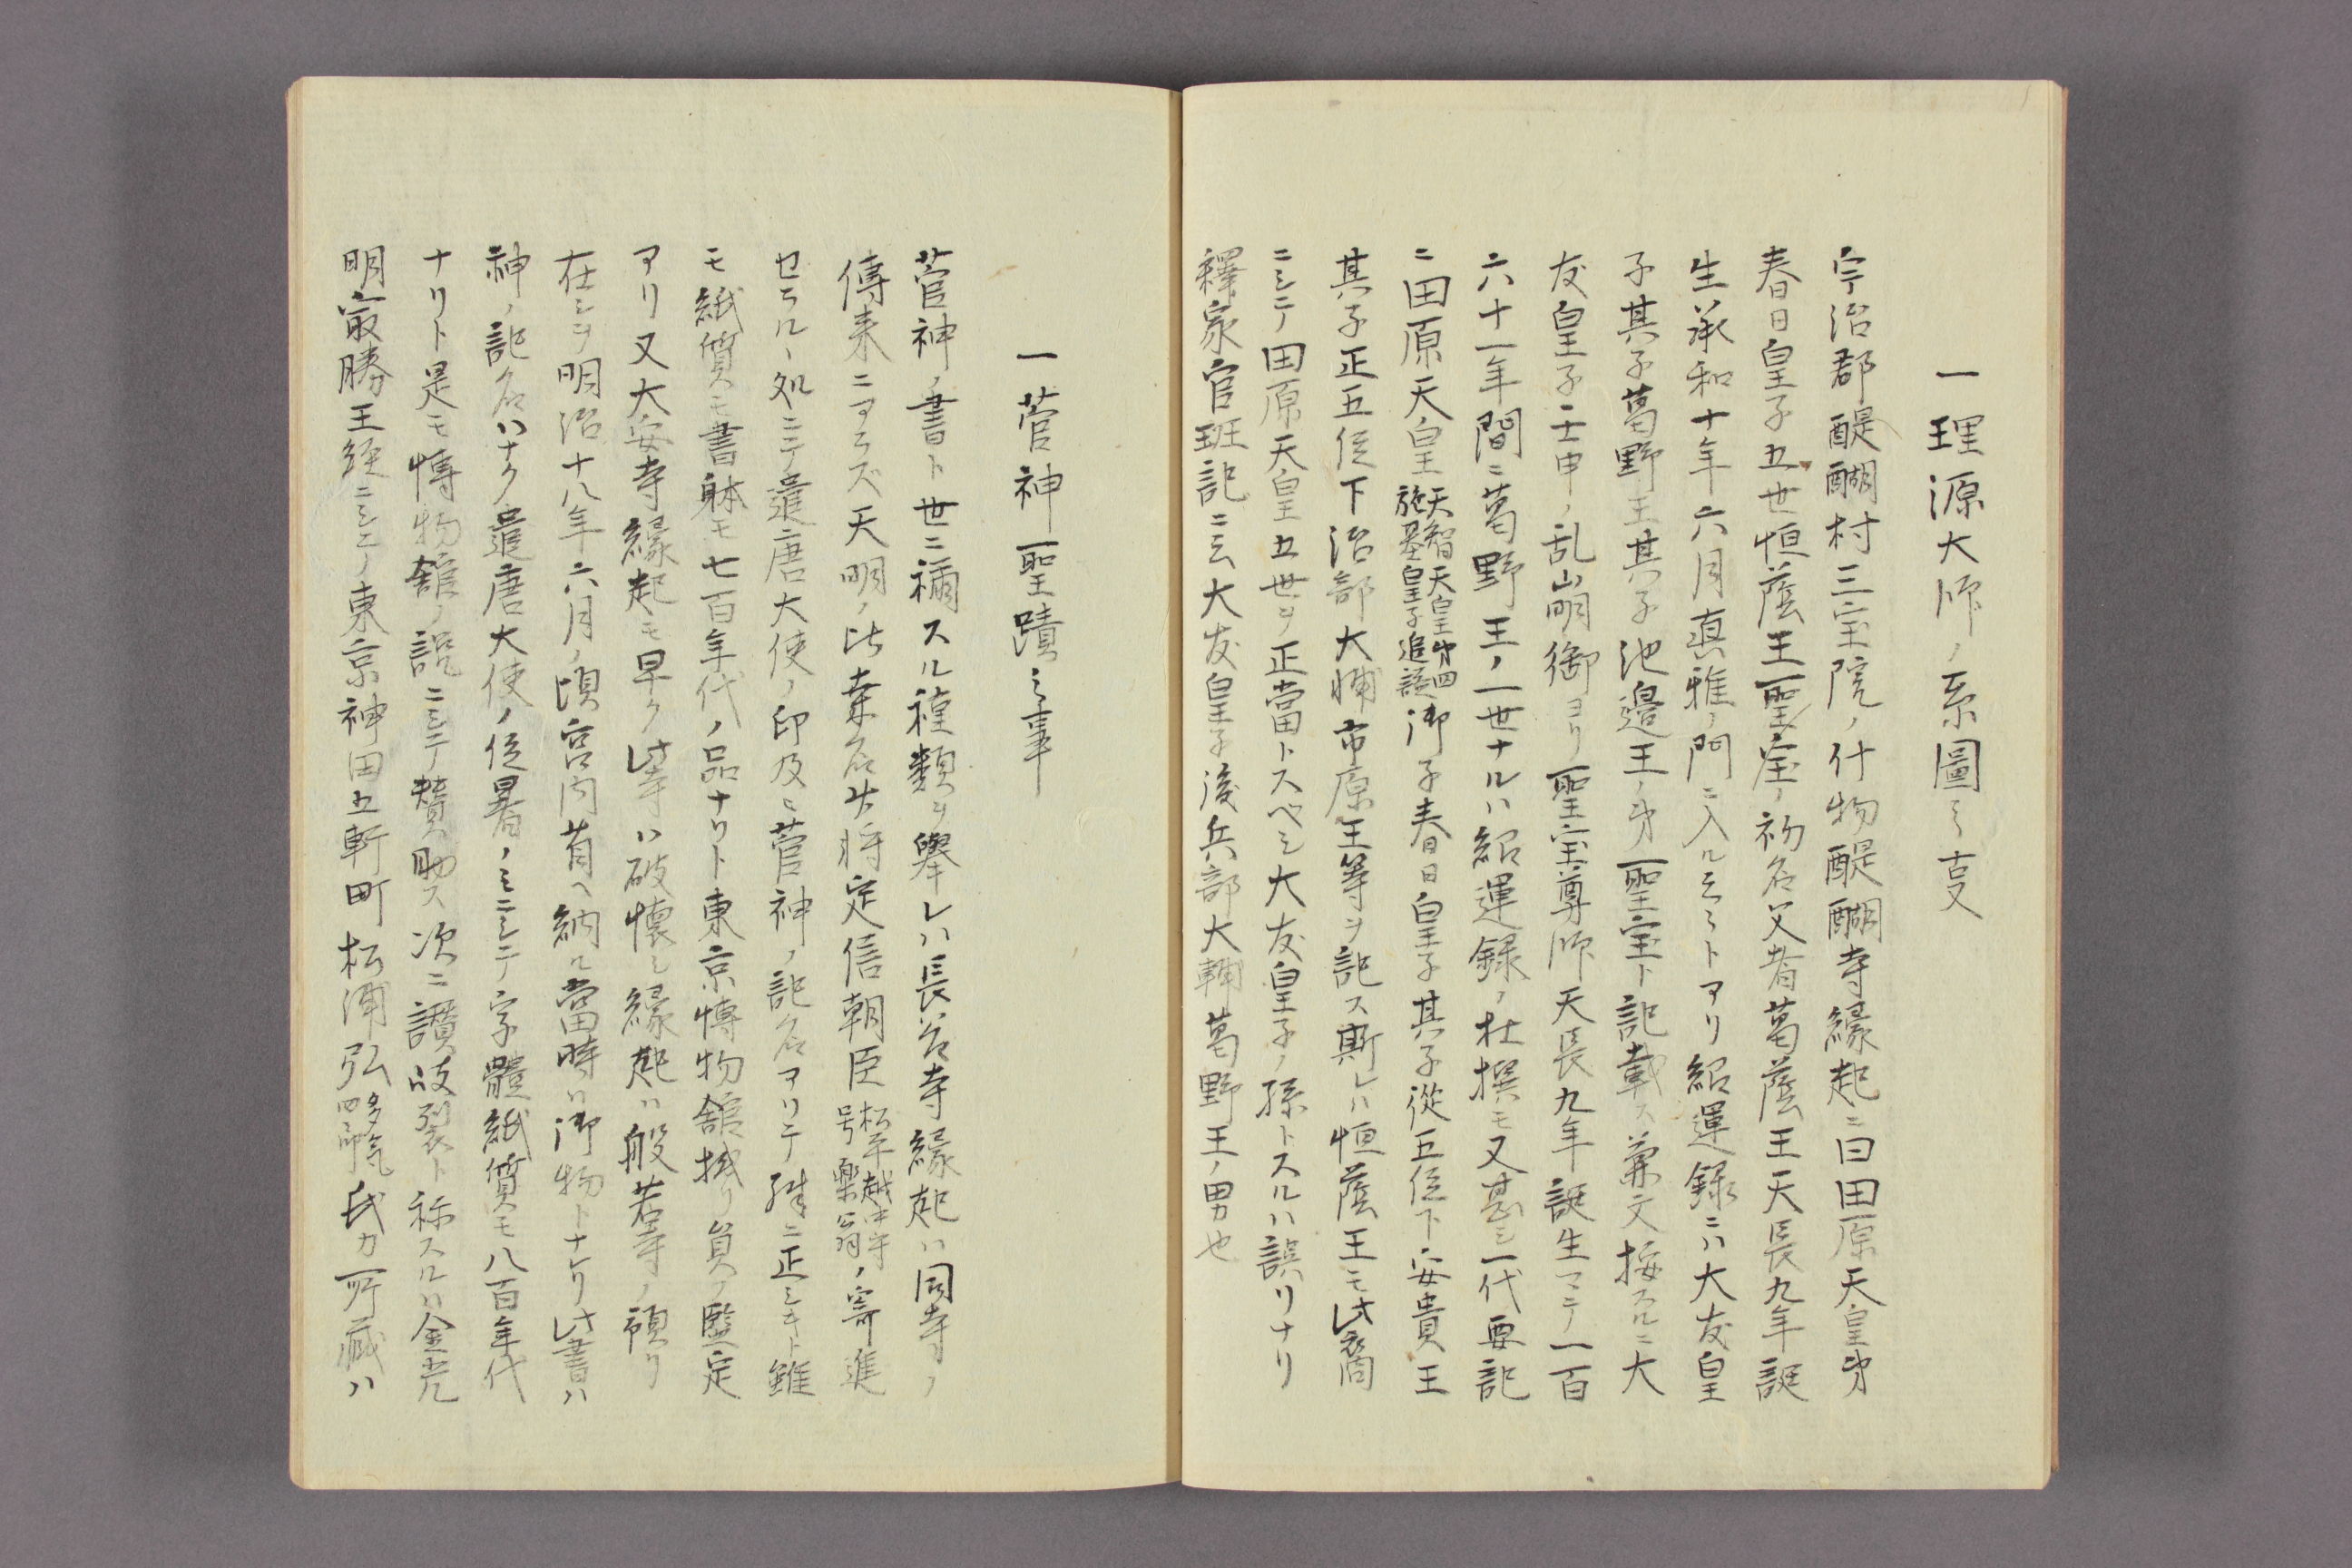 一理源大師ノ系圖之支
宇治郡醍醐村三宝院ノ什物醍醐寺縁起ニ曰田原天皇弟
春日皇子五世恒蔭王聖宝ノ初名父者葛蔭王天長九年誕
生承和十年六月真雅ノ門ニ入ル云々トアリ紹運録ニハ大友皇
子其子葛野王其子池邉王ノ弟聖宝ト記載ス兼文按スルニ大
友皇子壬申ノ乱崩御ヨリ聖宝尊師天長九年誕生マテ一百
六十一年間ニ葛野王ノ一世ナルハ紹運録ノ杜撰モ又甚シ一代要記
ニ田原天皇天智天皇第四施基皇子追謚御子春日皇子其子從五位下安貴王
其子正五位下治部大輔市原王等ヲ記ス斯レハ恒蔭王モ此裔
ニシテ田原天皇五世ヲ正當トスベシ大友皇子ノ孫トスルハ誤リナリ
釋家官班記ニ云大友皇子後兵部大輔葛野王ノ男也
一菅神聖蹟之事
菅神ノ書ト世ニ稱スル種類ヲ擧レハ長谷寺縁起ハ同寺ノ
傳来ニアラズ天明ノ比桑名少将定信朝臣松平越中守号楽翁ノ寄進
セラル丶処ニテ遣唐大使ノ印及ヒ菅神ノ記名アリテ殊ニ正シキト雖
モ紙質モ書躰モ七百年代ノ品ナリト東京博物舘掛リ員ノ監定
アリ又大安寺縁起モ早ク此寺ハ破懐シ縁起ハ般若寺ノ預リ
在シヲ明治十八年六月ノ頃宮内省ヘ納ル當時ハ御物トナレリ此書ハ
神ノ記名ハナク遣唐大使ノ位署ノミニシテ字體紙質モ八百年代
ナリト是モ博物舘ノ説ニシテ賛助ス次ニ讃岐裂ト称スルハ金光
明最勝王経ニシテ東京神田五軒町松浦弘多気四郎氏カ所蔵ハ